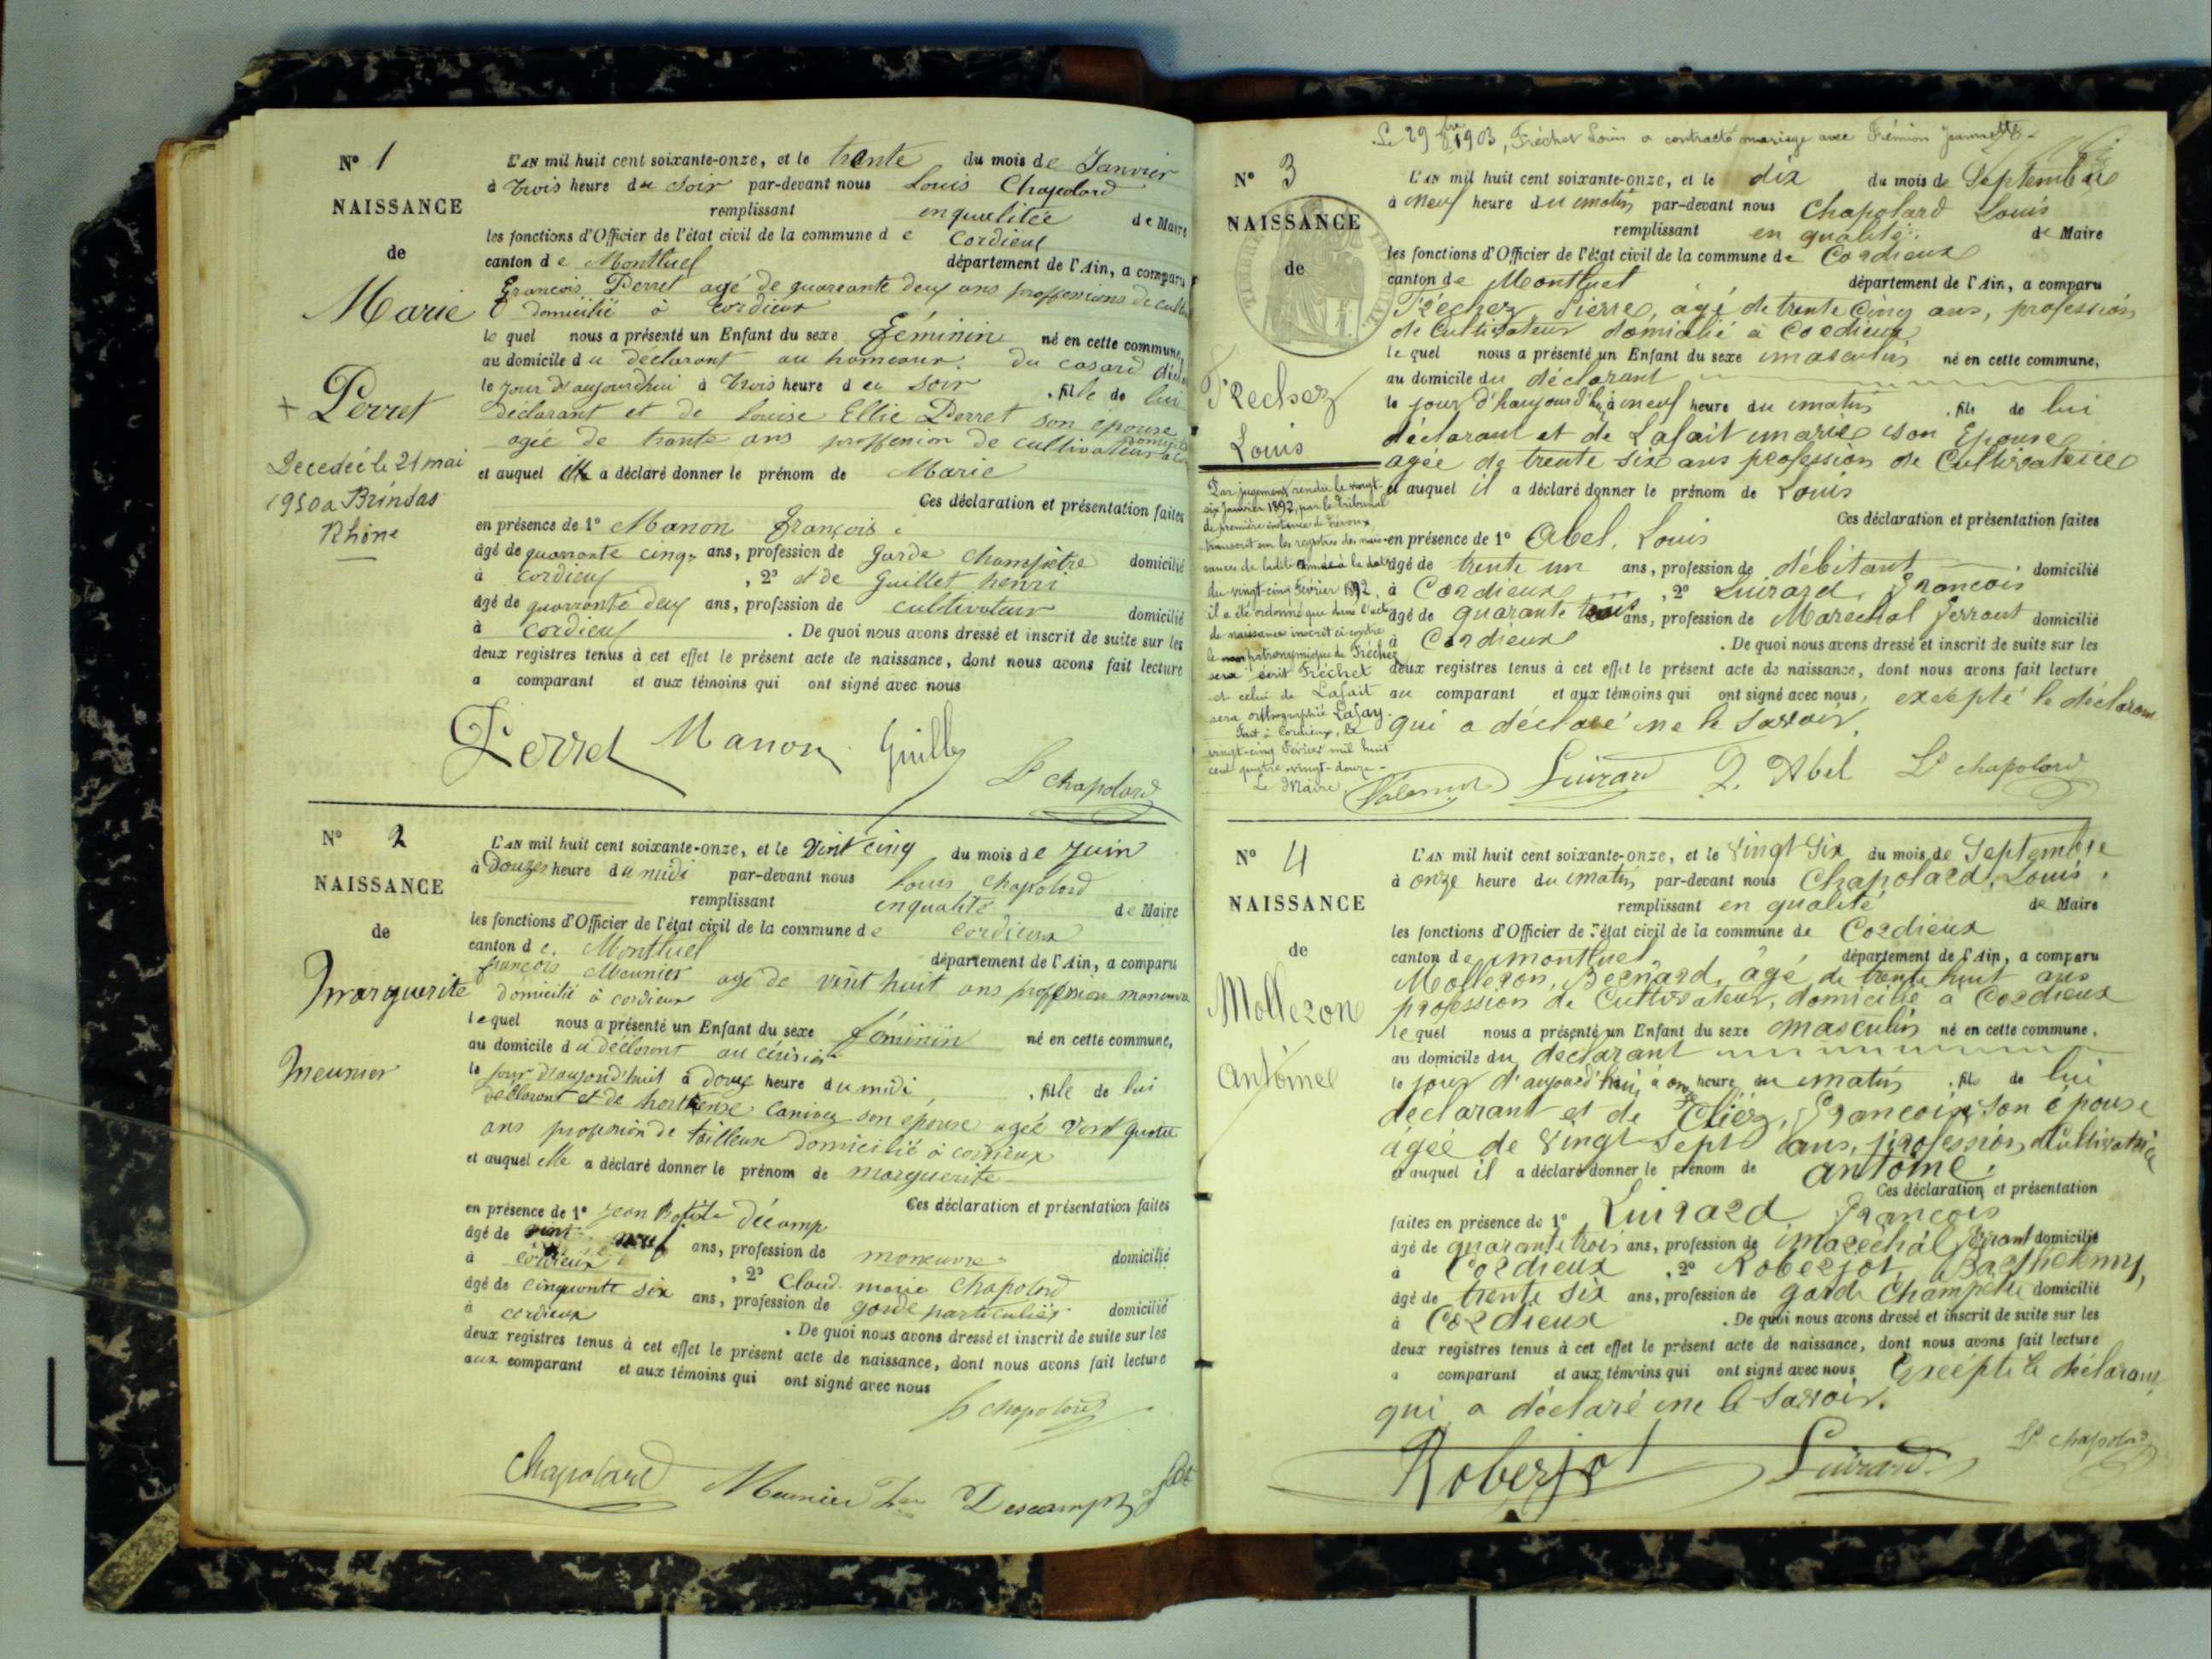 N° 1
NAISSANCE
de
Marie
+ Perret
Decedée le 21 mai
1950 a Brindas
Rhône
L'AN mil huit cent soixante-onze, et le trente du mois de Janvier
à trois heure du soir par-devant nous Louis Chapolard
remplissant enqualitée de Maire
les fonctions d'Officier de l'état civil de la commune de Cordieux
canton de Montluel département de l'Ain, a comparu
François Perret agé de quareante deux ans proffesions de
domicilié à Cordieux
le quel nous a présenté un Enfant du sexe Féminin né en cette commune,
au domicile du déclarant au hameaux du
le jour d'aujourdhui à trois heure du soir , fille de lui
déclarant et de Louise Ellie Perret son épouse
agée de trante ans proffesion de cultivateur
et auquel il a déclaré donner le prénom de Marie
Ces déclaration et présentation faites
en présence de 1° Manon François
âgé de quarrante cinq ans, profession de garde champêtre domicilié
à Cordieux , 2° et de Guillet henri
âgé de quarrante deux ans, profession de cultivateur domicilié
à Cordieux . De quoi nous avons dressé et inscrit de suite sur les
deux registres tenus à cet effet le présent acte de naissance, dont nous avons fait lecture
a comparant et aux témoins qui ont signé avec nous
Perret Manon Guillet
Ls chapolard
N° 2
NAISSANCE
de
Marguerite
Meunier
L'AN mil huit cent soixante-onze, et le vint cinq du mois de Juin
à Douzes heure du midi par-devant nous Louis Chapolard
remplissant enqualité de Maire
les fonctions d'Officier de l'état civil de la commune de Cordieux
canton de Montluel département de l'Ain, a comparu
françois Meunier agé de vint huit ans proffesion
domicilié à cordieux
lequel nous a présenté un Enfant du sexe féminin né en cette commune,
au domicile du déclarant au
le jour d'aujourd'huit à douze heure du midi , fille de lui
déclarant et de hortense son épouse agée vint quatre
ans profession de tailleuse domicilié à cordieux
et auquel elle a déclaré donner le prénom de marguerite
Ces déclaration et présentation faites
en présence de 1° Jean Batiste Décamp
âgé de vint neuf ans, profession de domicilié
à cordieux , 2° Claud marie Chapolard
âgé de cinquante six ans, profession de garde particulier domicilié
à cordieux . De quoi nous avons dressé et inscrit de suite sur les
deux registres tenus à cet effet le présent acte de naissance, dont nous avons fait lecture
aux comparant et aux témoins qui ont signé avec nous
Ls chapolard
Chapolard Meunier Descamps
Le 29 8bre 1903, Fréchet Louis a contracté mariage avec Frémion Jeannette
N° 3
NAISSANCE
de
Frechez
Louis
Par jugement rendu le vingt-
six Janvier 1892, par le tribunal
de première instance de Trévoux,
transcrit sur les registres des nais-
sances de ladite année à la date
du vingt-cinq Février 1892,
il a été ordonné que dans l'acte
de naissance inscrit ci-contre
le nom patronymique de Fréchez
sera écrit Fréchet
et celui de Lafait
sera orthographié Lafay.
Fait à Cordieux, le
vingt-cinq Février mil huit
cent quatre-vingt-douze.
Le Maire
L'AN mil huit cent soixante-onze, et le dix du mois de Septembre
à neuf heure du matin par-devant nous Chapolard Louis
remplissant en qualité de Maire
les fonctions d'Officier de l'état civil de la commune de Cordieux
canton de Montluel département de l'Ain, a comparu
Fréchez, Pierre, âgé de trente cinq ans, profession
de Cultivateur domicilié à Cordieux
le quel nous a présenté un Enfant du sexe masculin né en cette commune,
au domicile du déclarant
le jour d'haujourd'hui à neuf heure du matin , fils de lui
déclarant et de Lafait marie son Epouse
agée de trente six ans profession de Cultivatrice
et auquel il a déclaré donner le prénom de Louis
Ces déclaration et présentation faites
en présence de 1° Abel, Louis
âgé de trente un ans, profession de débitant domicilié
à Cordieux , 2° Luirard, François
âgé de quarante trois ans, profession de Marechal ferrant domicilié
à Cordieux . De quoi nous avons dressé et inscrit de suite sur les
deux registres tenus à cet effet le présent acte de naissance, dont nous avons fait lecture
au comparant et aux témoins qui ont signé avec nous, excepté le déclarant
qui a déclaré ne le savoir.
Luirard L. Abel Ls chapolard
N° 4
NAISSANCE
de
Molleron
Antoine
L'AN mil huit cent soixante-onze, et le Vingt Six du mois de Septembre
à onze heure du matin, par-devant nous Chapolard, Louis,
remplissant en qualité de Maire
les fonctions d'Officier de l'état civil de la commune de Cordieux
canton de montluel département de l'Ain, a comparu
Molleron, Bernard, âgé de trente huit ans
profession de Cultivateur, domicilié à Cordieux
le quel nous a présenté un Enfant du sexe masculin né en cette commune,
au domicile du déclarant
le jour d'aujourd'hui, à onze heure du matin , fils de lui
déclarant et de Cliez, Françoise son épouse
âgée de Vingt Sept ans, profession Cultivatrice
et auquel il a déclaré donner le prénom de Antoine.
Ces déclaration et présentation
faites en présence de 1° Luirard François
âgé de quarante trois ans, profession de marechal ferrant domicilié
à Cordieux , 2° Roberjot, Barthélemy,
âgé de trente six ans, profession de garde Champêtre domicilié
à Cordieux . De quoi nous avons dressé et inscrit de suite sur les
deux registres tenus à cet effet le présent acte de naissance, dont nous avons fait lecture
a comparant et aux témoins qui ont signé avec nous Excepté le déclarant
qui a déclaré ne le savoir.
Roberjot Luirard Ls chapolard